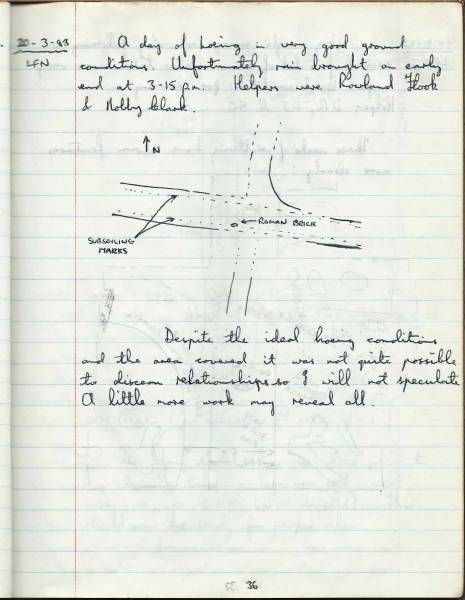 20-3-83
LFN
A day of hoeing in very good ground
conditions. Unfortunately rain brought an early
end at 3-15 p.m. Helpers were Rowland Hook
& Nobby Clark.
N
ROMAN BRICK
SUBSOILING
MARKS
Despite the ideal hoeing conditions
and the area covered it was not quite possible
to discern relationships so I will not speculate
A little more work may reveal all.
36